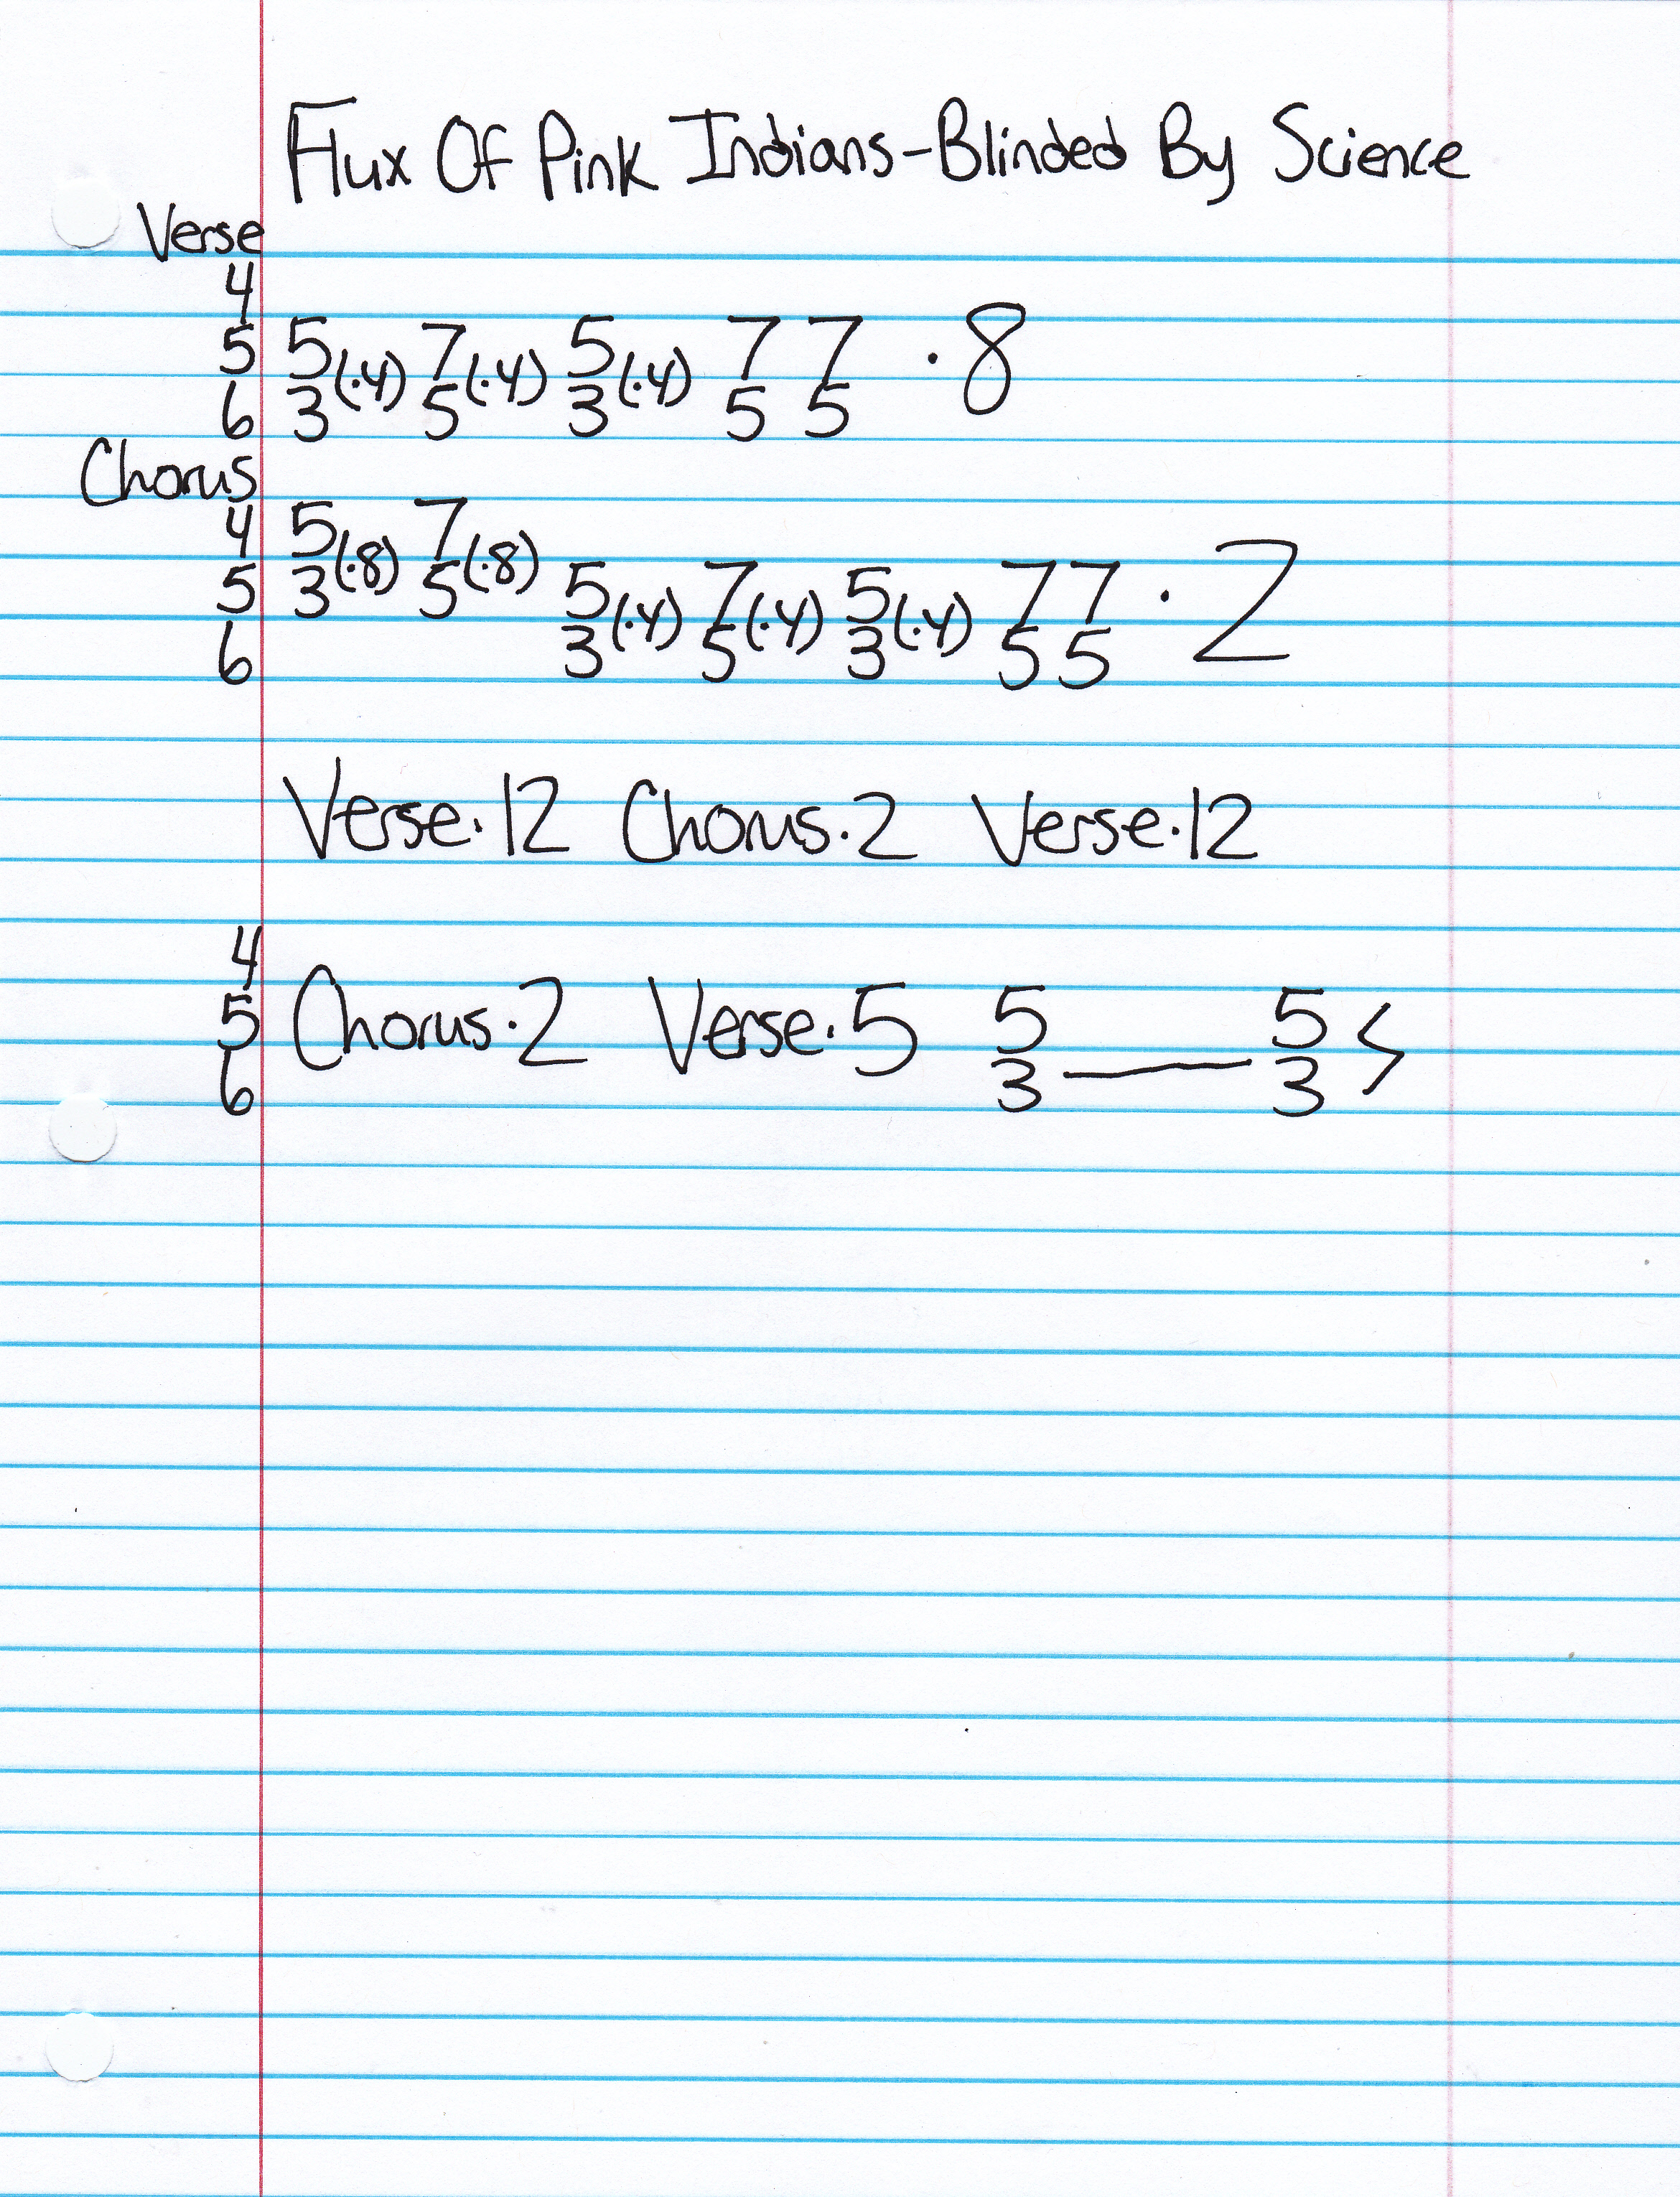 Flux Of Pink Indians-Blinded By Science
Verse
4
5 5 7 5 7 7
(·4) (·4) (·4) ·8
6 3 5 3 5 5
Chorus
4 5 7
(·8) (·8)
5 3 5 5 7 5 7 7
(·4) (·4) (·4) ·2
6 3 5 3 5 5
Verse·12 Chorus·2 Verse·12
4
5 Chorus·2 Verse·5 5 5
6 3 — 3